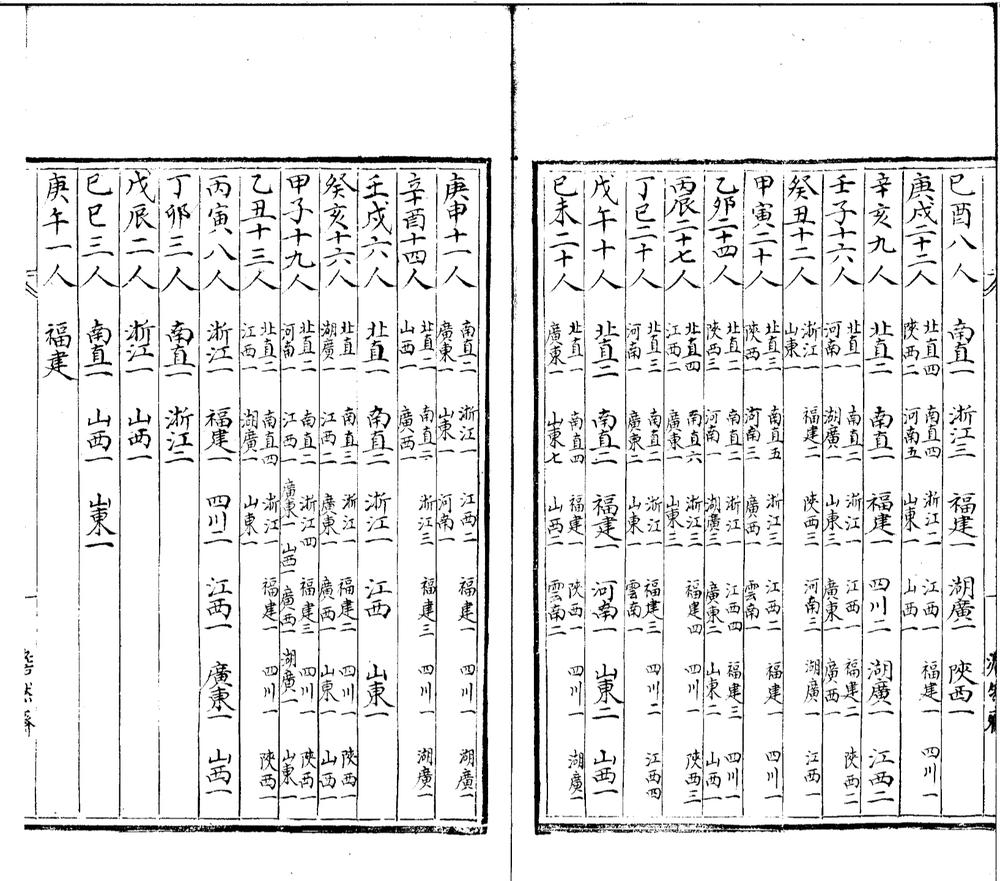 已酉八人 南直一 浙江三 福建一 湖廣一 陝西一
庚戌二十二人 北直四 南直四 浙江二 江西一 福建一 四川一
陝西二 河南五 山東一 山西一
辛亥九人 北直二 南直一 福建一 四川二 湖廣一 江西二
壬子十六人 北直一 南直二 浙江一 江西一 福建二 陝西二
河南一 湖廣一 山東三 廣東一 廣西一
癸丑十二人 浙江一 福建二 陝西三 河南三 湖廣一 江西一
山東一
甲寅二十人 北直三 南直五 浙江三 江西二 福建一 四川一
陝西一 河南三 廣西一 雲南一
乙卯二十四人 北直二 南直二 浙江一 江西四 福建三 四川一
陝西三 河南一 湖廣三 廣東二 山東二 山西一
丙辰二十七人 北直四 南直六 浙江三 福建四 四川一 陝西三
江西二 廣東一 山東三
丁巳二十人 北直三 南直二 浙江一 福建三 四川二 江西四
河南一 廣東二 山東一 雲南一
戊午十人 北直二 南直二 福建一 河南一 山東二 山西一
已未二十人 北直一 南直四 福建一 陝西一 四川一 湖廣一
廣東一 山東七 山西二 雲南二
庚申十一人 南直二 浙江一 江西二 福建一 四川一 湖廣一
廣東一 山東一 河南一
辛酉十四人 北直二 南直二 浙江三 福建三 四川一 湖廣一
山西一 廣西一
壬戌六人 北直一 南直二 浙江一 江西 山東一
癸亥十六人 北直 南直三 浙江一 福建二 四川一 陝西一
湖廣一 江西二 廣東一 廣西一 山東一 山西一
甲子十九人 北直二 南直二 浙江四 福建三 四川一 陝西一
河南一 江西一 廣東一 山西一 廣西一 湖廣一 山東一
乙丑十三人 北直二 南直四 浙江一 福建一 四川一 陝西一
江西一 湖廣一 山東一
丙寅八人 浙江一 福建一 四川二 江西一 廣東一 山西一
丁卯三人 南直一 浙江二
戊辰二人 浙江一 山西一
已巳三人 南直一 山西一 山東一
庚午一人 福建